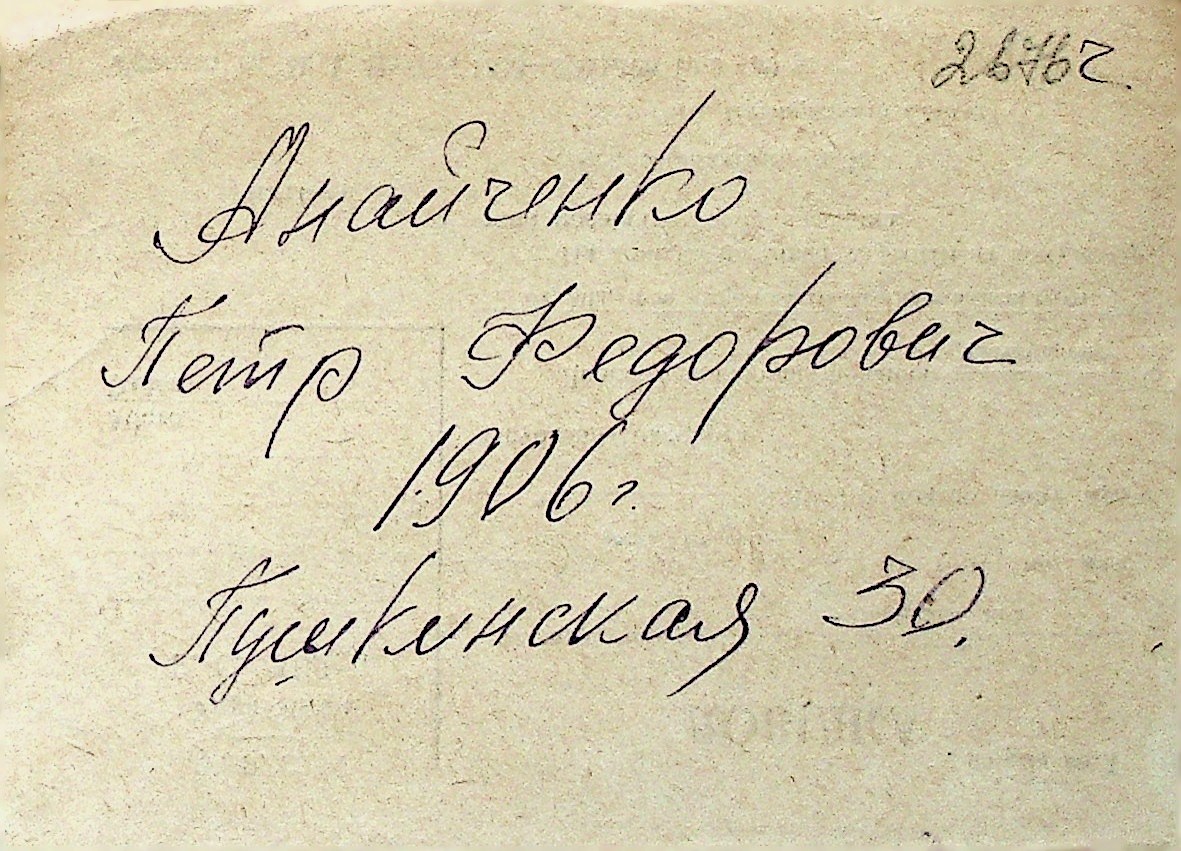 2676г.
Анайченко
Петр Федорович
1906г.
Пушкинская 30.